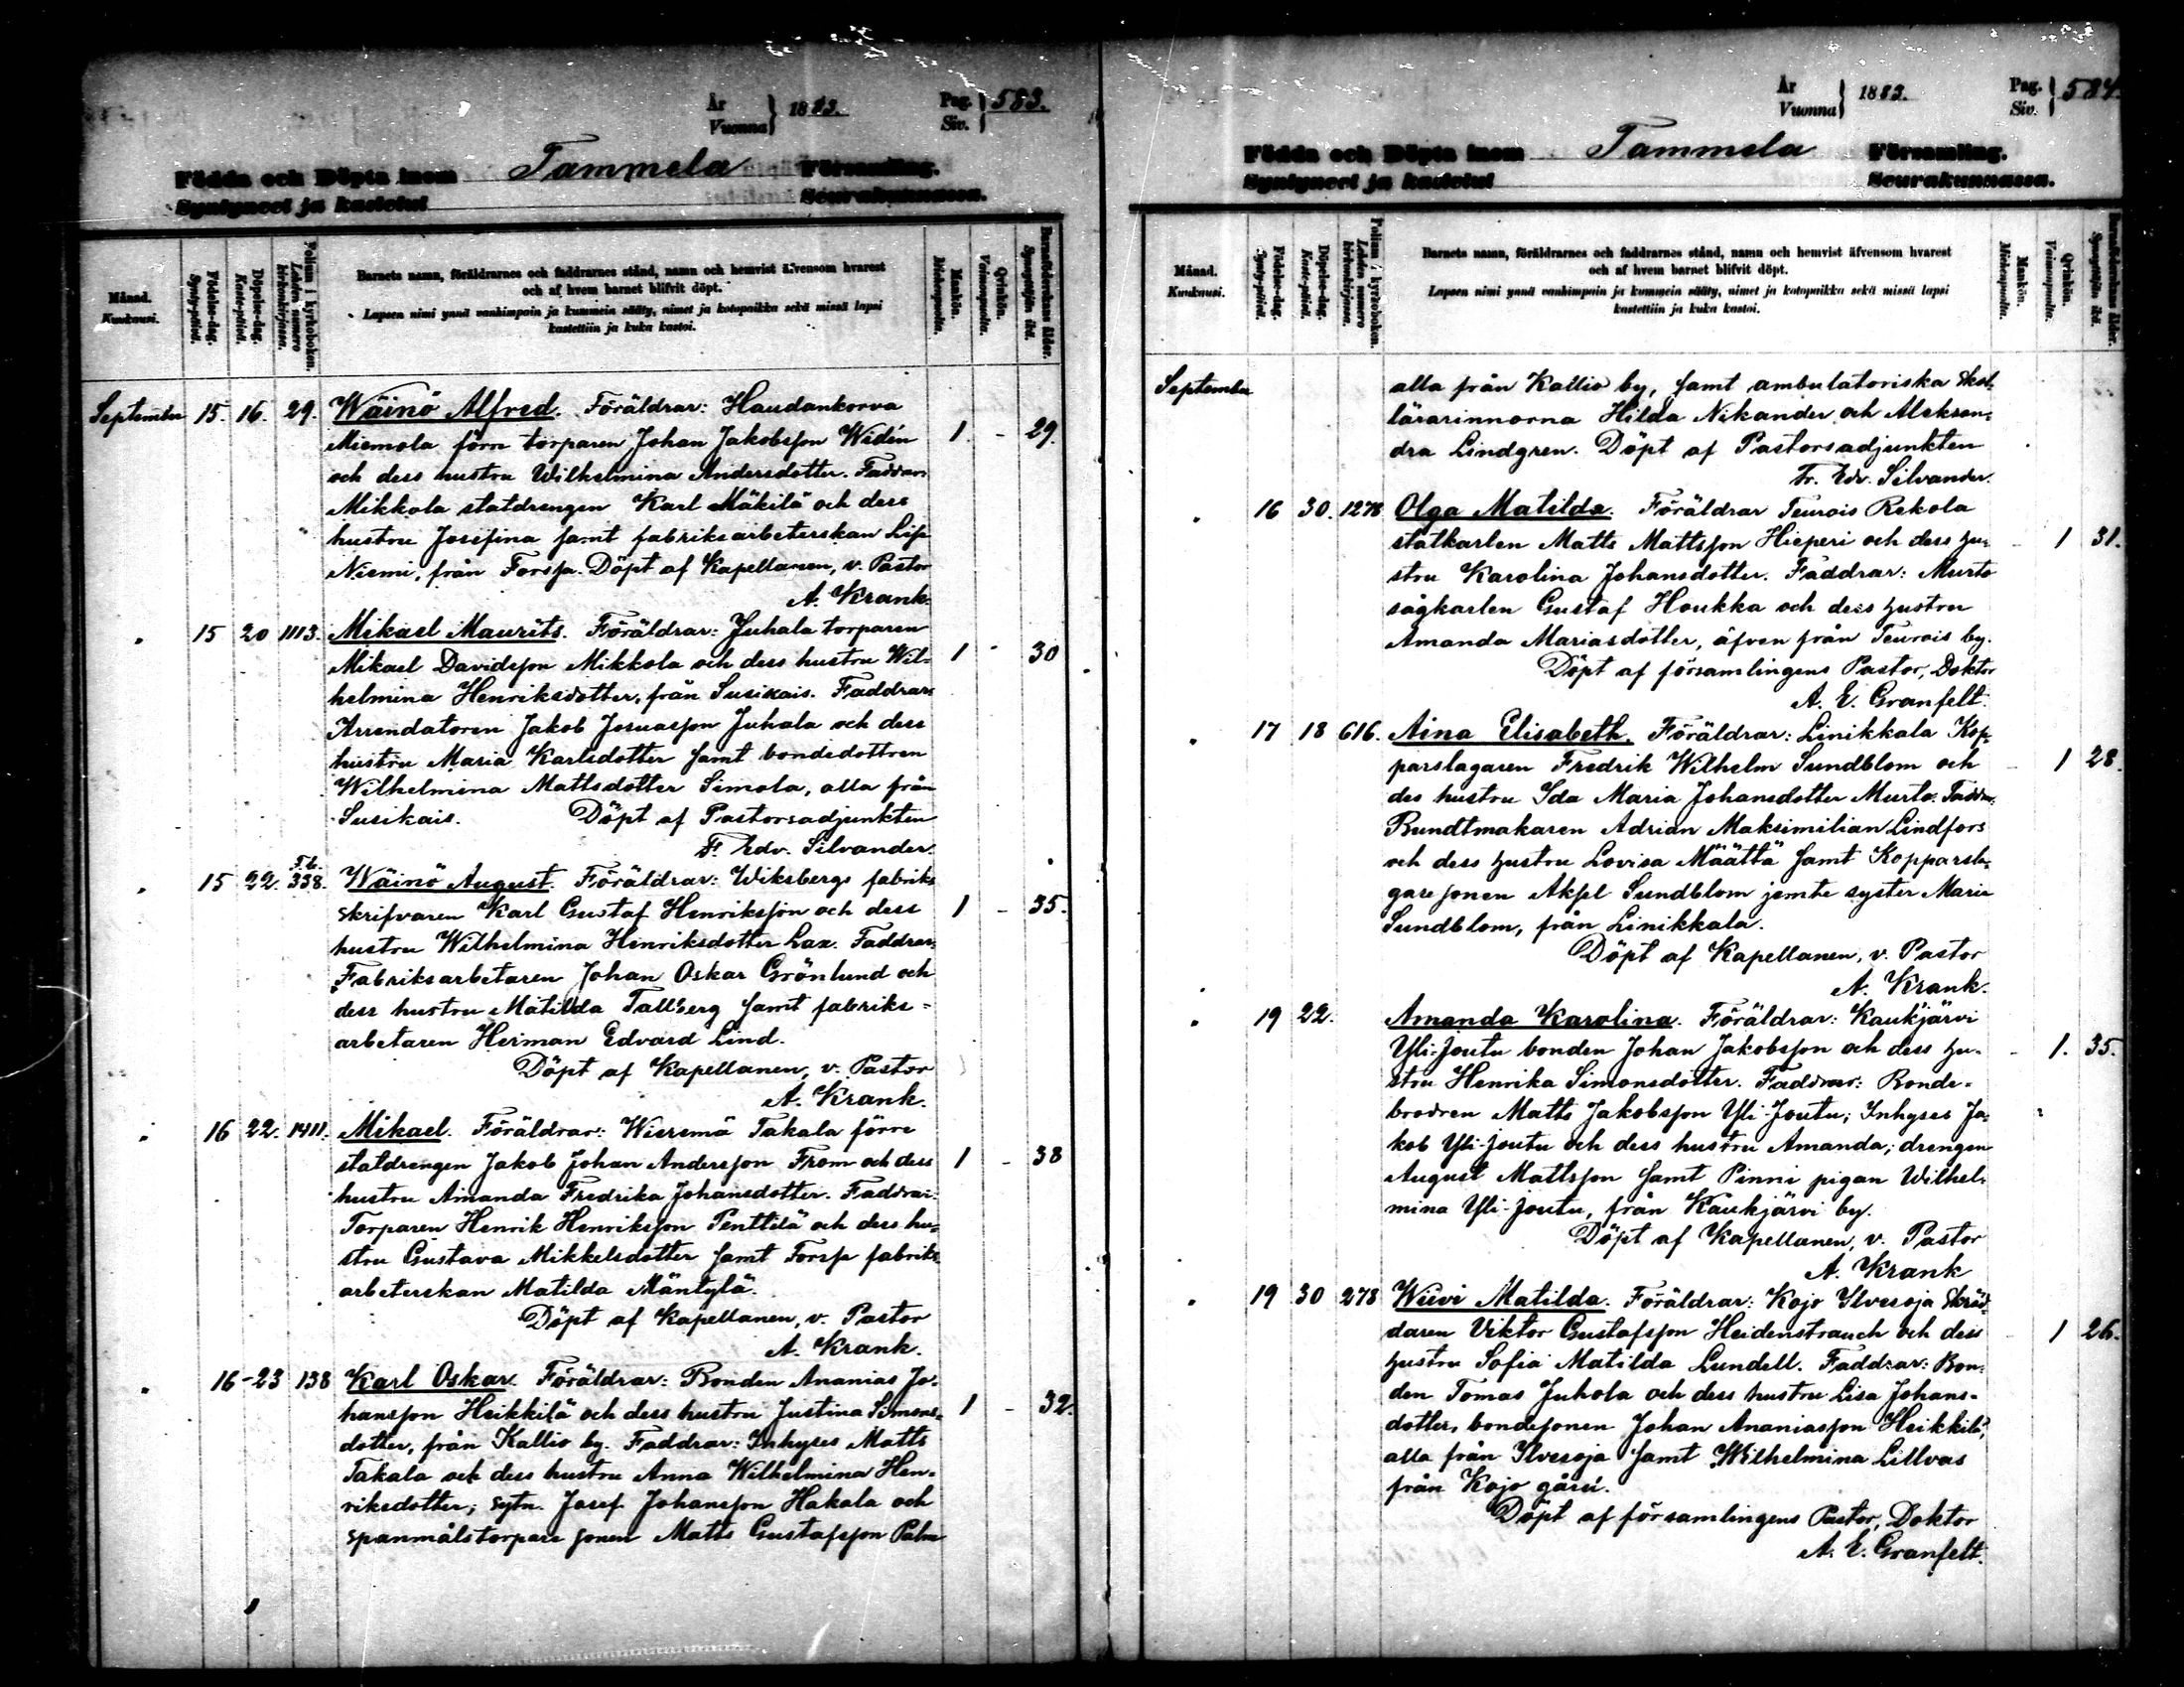 År
Vuonna } 1883.
Pag.
Siv. } 583.
Födda och Döpta inom Tammela Församling.
Syntyneet ja kastetut Seurakunnassa.
Månad.
Kuukausi.
Födelse-dag.
Synty-päivä.
Döpelse-dag.
Kaste-päivä.
Folium i kyrkoboken.
Lehden numero kirkonkirjassa.
Barnets namn, föräldrarnes och faddrarnes stånd, namn och hemvist äfvensom hvarest
och af hvem barnet blifvit döpt.
Lapsen nimi ynnä vanhimpain ja kummein sääty, nimet ja kotopaikka sekä missä lapsi
kastettiin ja kuka kastoi.
Mankön.
Miehenpuolta.
Qvinkön.
Vaimonpuolta.
Barnaföderskans ålder.
Synnyttäjän ikä.
September 15. 16. 29. Wäinö Alfred. Föräldrar: Haudankorva
Miemola förra torparen Johan Jakobsson Widén 1. - 29.
och dess hustru Wilhelmina Andersdotter. Faddrar:
Mikkola statdrengen Karl Mäkilä och dess
hustru Josefina samt fabriksarbeterskan Lisa
Niemi, från Forssa. Döpt af Kapellanen, v. Pastor
A. Krank.
" 15 20 1113. Mikael Maurits. Föräldrar: Juhala torparen
Mikael Davidsson Mikkola och dess hustru Wil- 1 - 30
helmina Henriksdotter, från Susikais. Faddrar:
Arrendatoren Jakob Josuasson Juhala och dess
hustru Maria Karlsdotter samt bondedottren
Wilhelmina Mattsdotter Simola, alla från
Susikais. Döpt af Pastorsadjunkten
F. Edv. Silvander.
" 15 22. F.b. 338. Wäinö August. Föräldrar: Wiksbergs fabriks
skrifvaren Karl Gustaf Henriksson och dess 1 - 35.
hustru Wilhelmina Henriksdotter Lax. Faddrar:
Fabriksarbetaren Johan Oskar Grönlund och
dess hustru Matilda Tallberg samt fabriks-
arbetaren Herman Edvard Lind.
Döpt af Kapellanen, v. Pastor
A. Krank.
" 16 22. 1411. Mikael. Föräldrar: Wieremä Takala förre
statdrengen Jakob Johan Andersson From och dess 1 - 38
hustru Amanda Fredrika Johansdotter. Faddrar:
Torparen Henrik Henriksson Penttilä och dess hu-
stru Gustava Mikkelsdotter samt Forssa fabriks-
arbeterskan Matilda Mäntylä.
Döpt af Kapellanen, v. Pastor
A. Krank.
" 16 - 23 138 Karl Oskar. Föräldrar: Bonden Ananias Jo-
hansson Heikkilä och dess hustru Justina Simons- 1 - 32.
dotter, från Kallio by. Faddrar: Inhyses Matts
Takala och dess hustru Anna Wilhelmina Hen-
riksdotter; sytn. Josef Johansson Hakala och
spanmålstorpare sonen Matts Gustafsson Palm
År
Vuonna } 1883.
Pag.
Siv. } 584.
Födda och Döpta inom Tammela Församling.
Syntyneet ja kastetut Seurakunnassa.
Månad.
Kuukausi.
Födelse-dag.
Synty-päivä.
Döpelse-dag.
Kaste-päivä.
Folium i kyrkoboken.
Lehden numero kirkonkirjassa.
Barnets namn, föräldrarnes och faddrarnes stånd, namn och hemvist äfvensom hvarest
och af hvem barnet blifvit döpt.
Lapsen nimi ynnä vanhimpain ja kummein sääty, nimet ja kotopaikka sekä missä lapsi
kastettiin ja kuka kastoi.
Mankön.
Miehenpuolta.
Qvinkön.
Vaimonpuolta.
Barnaföderskans ålder.
Synnyttäjän ikä.
September alla från Kallio by, samt ambulatoriska skol-
lärarinnorna Hilda Nikander och Aleksan-
dra Lindgren. Döpt af Pastorsadjunkten
Fr. Edv. Silvander.
" 16 30. 1278 Olga Matilda. Föräldrar Teurois Rekola
statkarlen Matts Mattsson Hieperi och dess hu- - 1 31.
stru Karolina Johansdotter. Faddrar: Murto
sågkarlen Gustaf Houkka och dess hustru
Amanda Mariasdotter, äfven från Teurois by.
Döpt af församlingens Pastor, Doktor
A. E. Granfelt.
" 17 18 616. Aina Elisabeth. Föräldrar: Linikkala Kop-
parslagaren Fredrik Wilhelm Sundblom och - 1 28.
des hustru Ida Maria Johansdotter Murto. Faddr.:
Bundtmakaren Adrian Maksimilian Lindfors
och dess hustru Lovisa Määttä samt Kopparsla-
gare sonen Aksel Sundblom jemte syster Maria
Sundblom, från Linikkala.
Döpt af Kapellanen, v. Pastor
A. Krank.
" 19 22. Amanda Karolina. Föräldrar: Kaukjärvi
Yli-Joutu bonden Johan Jakobsson och dess hu- - 1. 35.
stru Henrika Simonsdotter. Faddrar: Bonde-
brodren Matts Jakobsson Yli-Joutu; Inhyses Ja-
kob Yli-Joutu och dess hustru Amanda; drengen
August Mattsson samt Pinni pigan Wilhel-
mina Yli-Joutu, från Kaukjärvi by.
Döpt af Kapellanen, v. Pastor
A. Krank
" 19 30 278 Wiivi Matilda. Föräldrar: Kojo Ilvesoja skräd-
daren Viktor Gustafsson Heidenstrauch och dess - 1 26.
hustru Sofia Matilda Lundell. Faddrar: Bon-
den Tomas Juhola och dess hustru Lisa Johans-
dotter, bondesonen Johan Ananiasson Heikkilä,
alla från Ilvesoja samt Wilhelmina Lillvas
från Kojo gård.
Döpt af församlingens Pastor, Doktor
A. E. Granfelt.